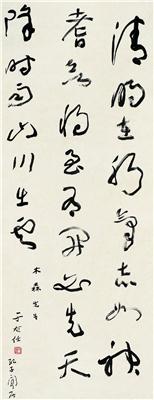 清明在躬氣志如神
耆欲將至有開必先天
降時雨山川出雲
木森先生
于右任
孔子閒居